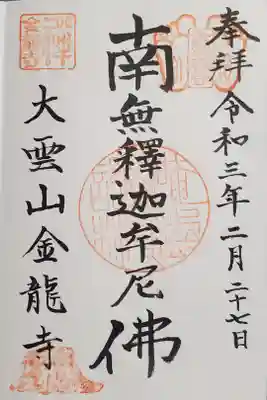 奉拜 令和三年二月二十七日
南無釋迦牟尼佛
大雲山金龍寺